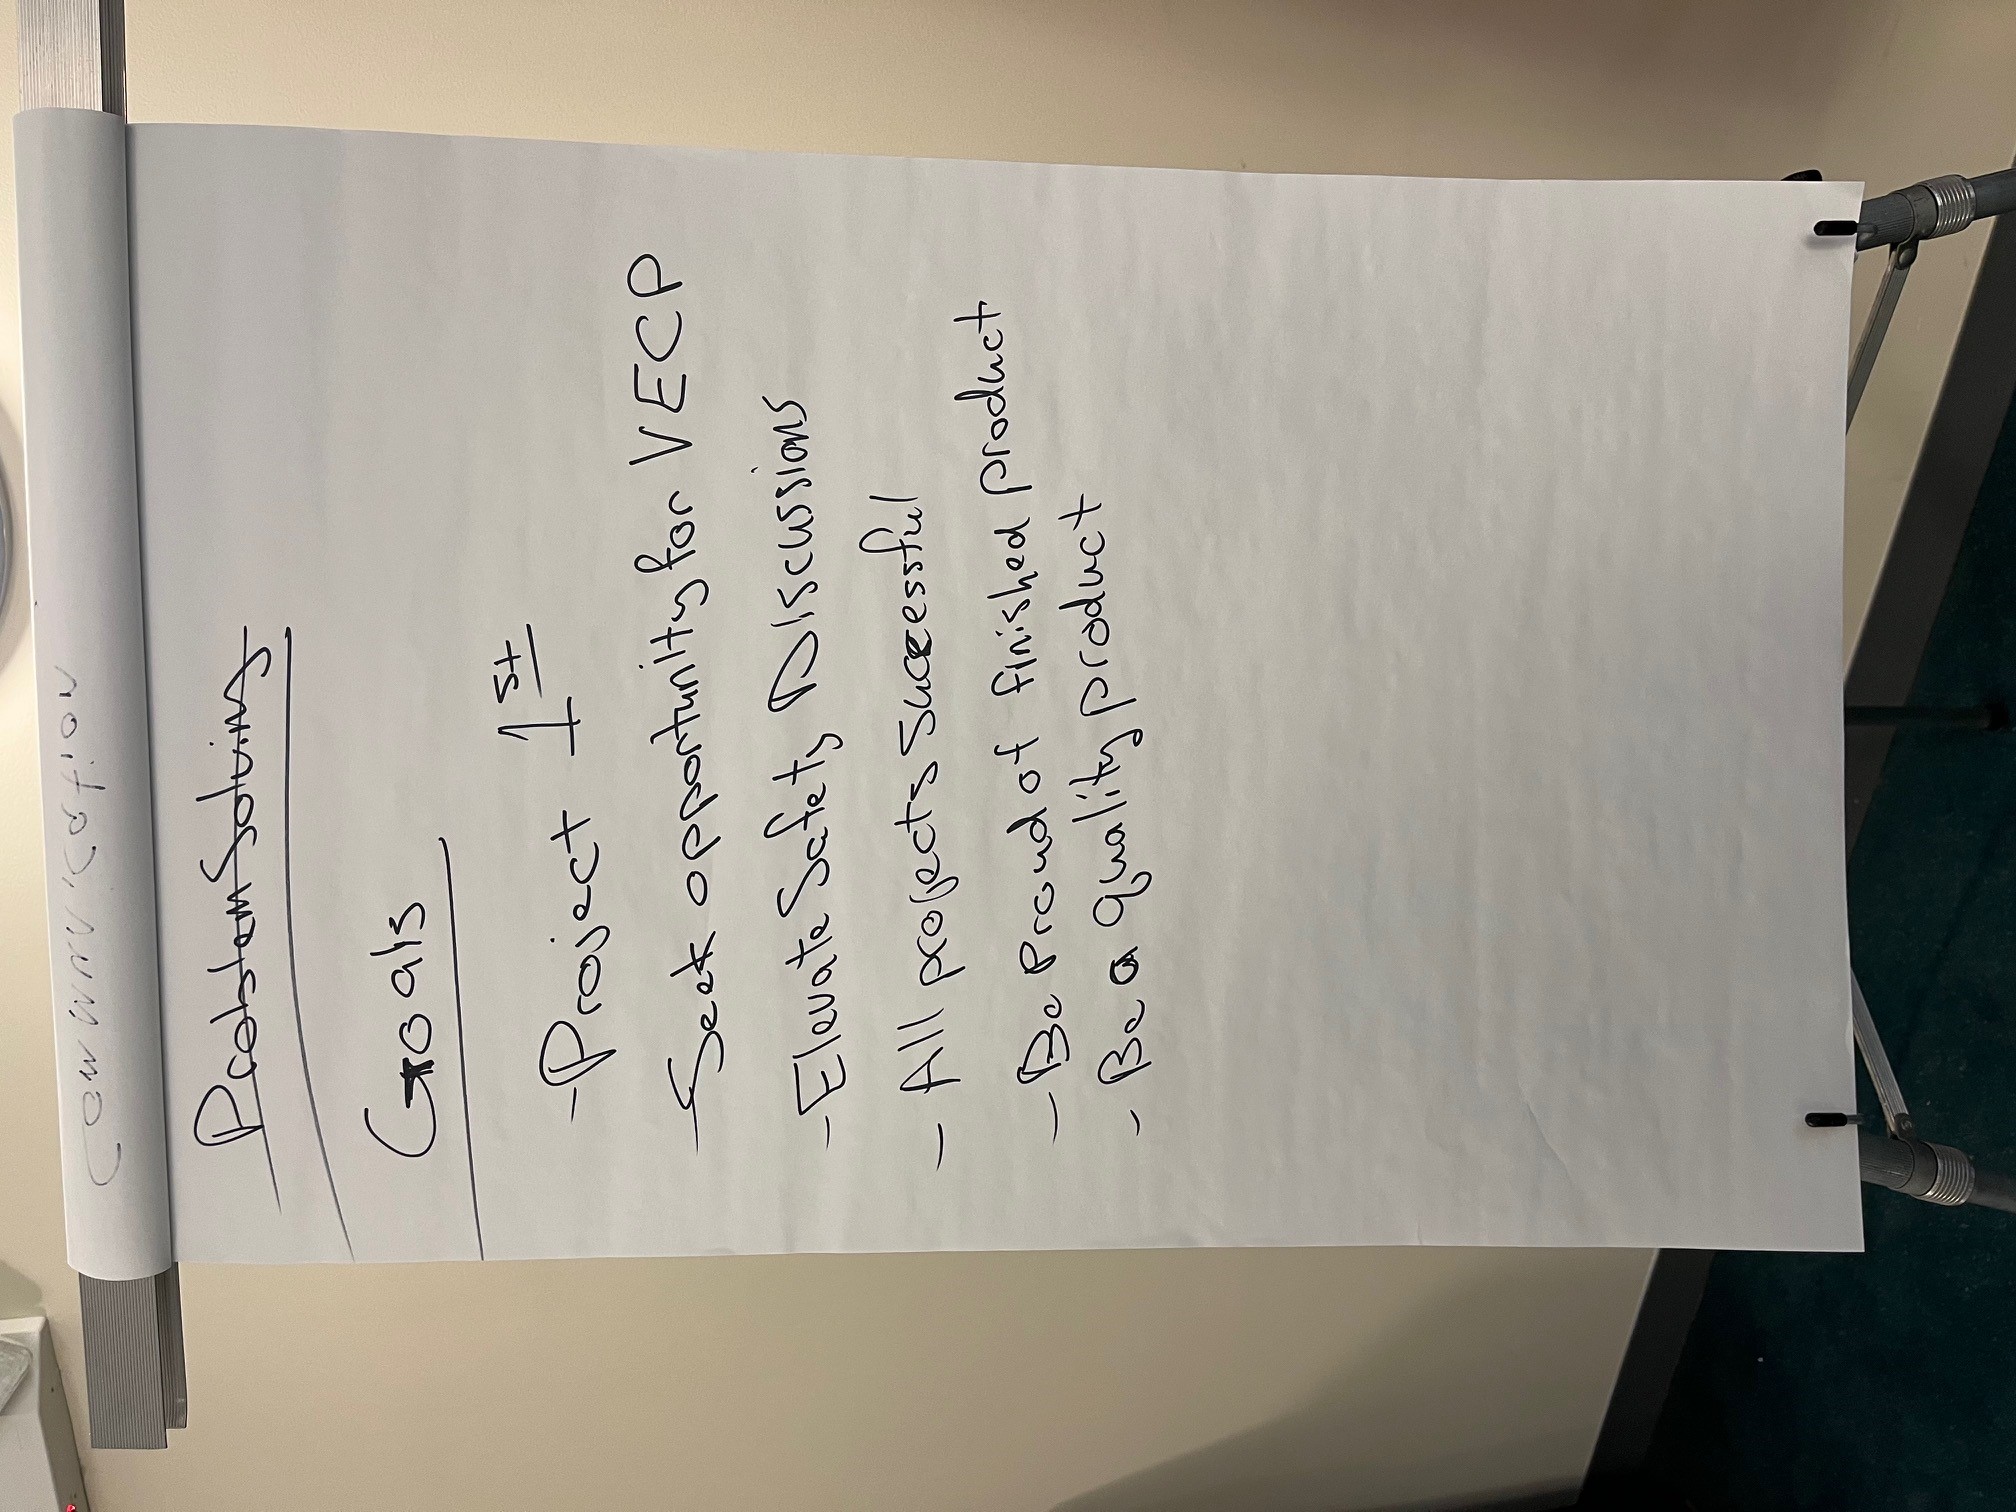 Communication
Problem Solving
Goals
- Project 1st
- Seek opportunity for VECP
- Elevate Safety Discussions
- All projects Successful
- Be Proud of finished product
- Be a quality product